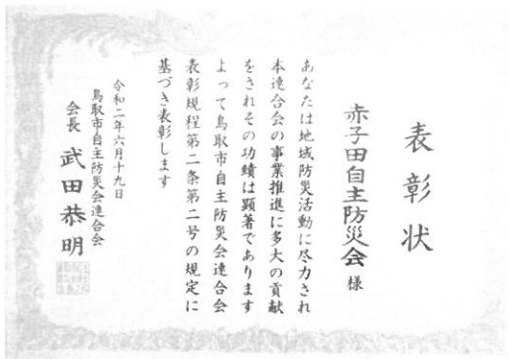 表彰状
赤子田自主防災会 様
あなたは地域防災活動に尽力され
本連合会の事業推進に多大の貢献
をされその功績は顕著であります
よって鳥取市自主防災会連合会
表彰規程第二条第二号の規定に
基づき表彰します
令和二年六月十九日
鳥取市自主防災会連合会
会長 武田恭明